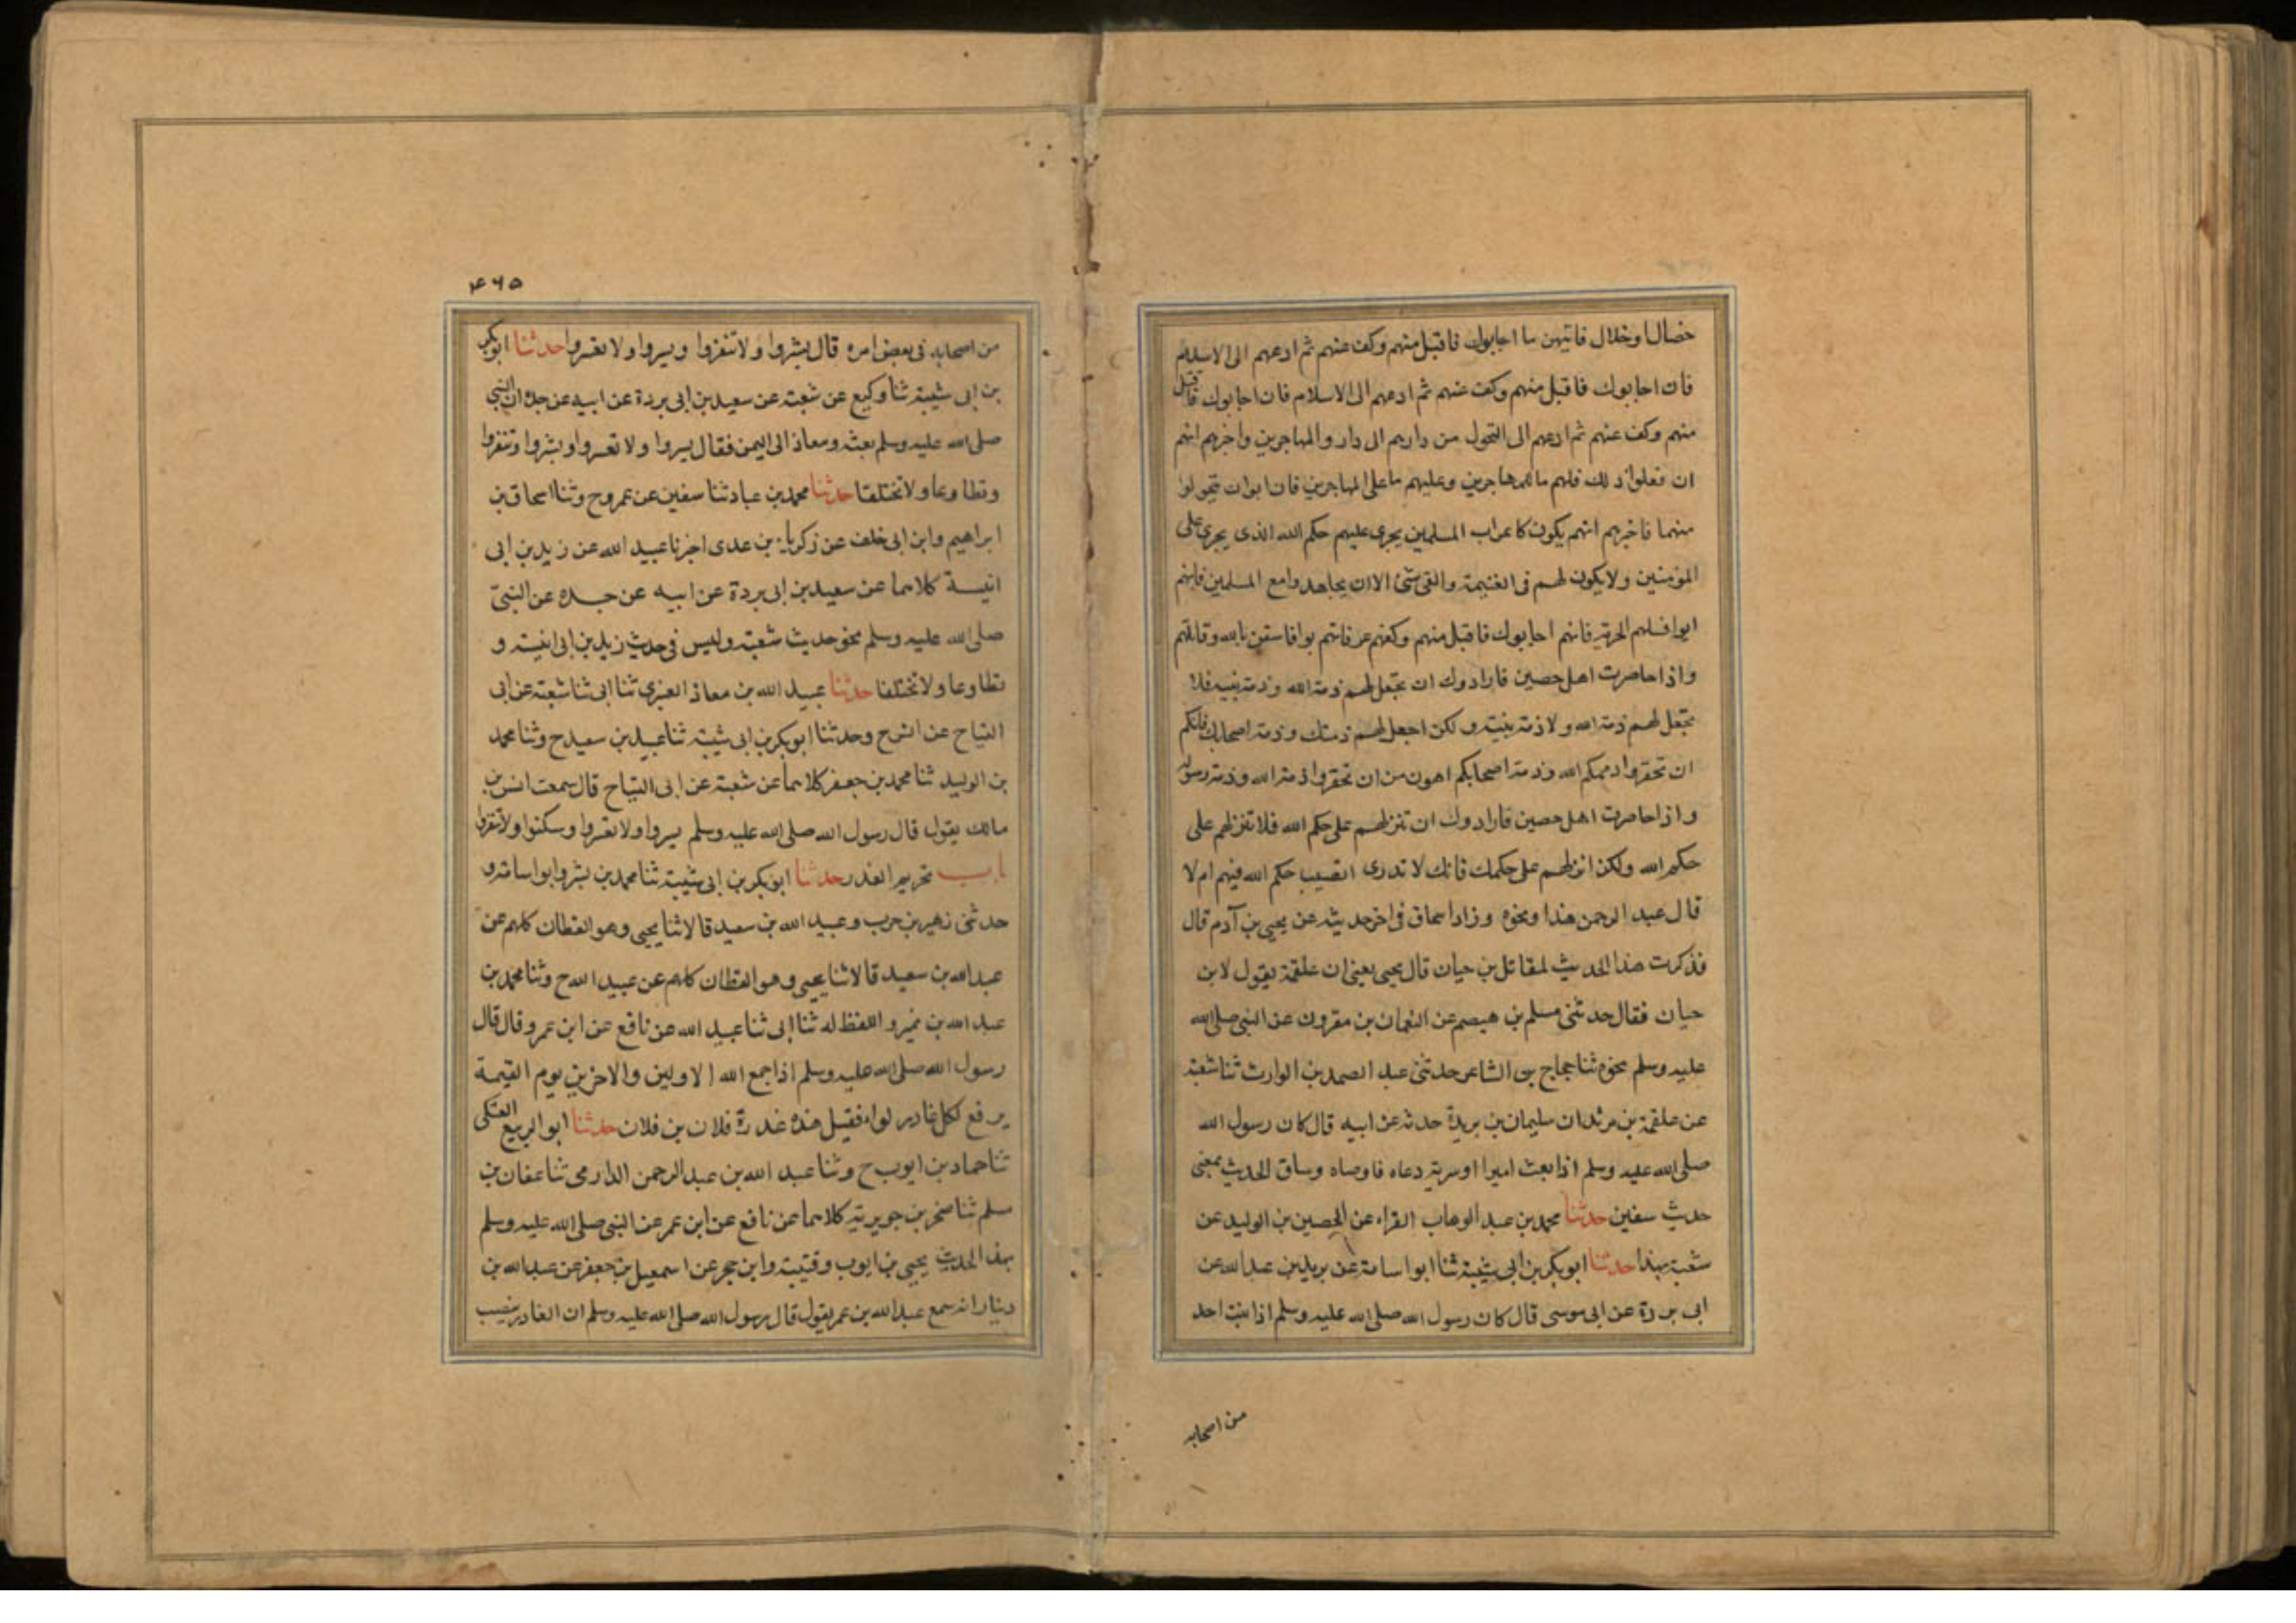 خصال او خلال فاتيهن ما اجابوك فاقبل منهم وكف عنهم ثم ادعهم الى الاسلام
فان اجابوك فاقبل منهم وكف عنهم ثم ادعهم الى الاسلام فان اجابوك فاقبل
منهم وكف عنهم ثم ادعهم الى التحول من دارهم الى دار والمهاجرين واخبرهم انهم
ان فعلوا ذلك فلهم ما للمهاجرين وعليهم ما على المهاجرين فان ابوا ان يتحولوا
منها فاخبرهم انهم يكون كاعراب المسلمين يجرى عليهم حكم الله الذى يجرى على
المؤمنين ولا يكون لهم فى الغنيمة والفى شئ الا ان يجاهدوا مع المسلمين فانهم
ابوا فسلهم الجزية فانهم اجابوك فاقبل منهم وكفهم عر فانهم بوا فاستعن بالله وقاتلهم
واذا حاصرت اهل حصين فارادوك ان تجعل لهم ذمة الله وذمة نبيه فلا
تجعل لهم ذمة الله ولا ذمة نبيه ولكن اجعل لهم ذمتك وذمة اصحابك فانكم
ان تخفروا ذممكم الله وذمة اصحابكم اهون من ان تخفروا ذمة الله وذمة رسوله
واذا حاصرت اهل حصين فارادوك ان تنزلهم على حكم الله فلا تنزلهم على
حكم الله ولكن انزلهم على حكمك فانك لا تدرى اتصيب حكم الله فيهم ام لا
قال عبد الرحمن هذا ونحوه وزاد اسحاق فى اخر حديثه عن يحيى بن آدم قال
فذكرت هذا الحديث لمقاتل بن حيان قال يحيى يعنى ان علقمة يقول لابن
حيان فقال حدثنى مسلم بن هيصم عن النعمان بن مقرون عن النبى صلى الله
عليه وسلم نحوه ثنا حجاج بن الشاعر حدثنى عبد الصمد بن الوارث ثنا شعبة
عن علقمة بن مرثد ان سليمان بن بريدة حدثه عن ابيه قال كان رسول الله
صلى الله عليه وسلم اذا بعث اميرا او سرية دعاه فاوصاه وساق الحديث بمعنى
حديث سفين حدثنا محمد بن عبد الوهاب الفراء عن الحصين بن الوليد عن
شعبة بهذا حدثنا ابو بكر بن ابى شيبة ثنا ابو اسامة عن بريد بن عبد الله عن
ابى بردة عن ابى موسى قال كان رسول الله صلى الله عليه وسلم اذا بعث احد
من اصحابه
۴۶۵
من اصحابه فى بعض امره قال بشروا ولا تنفروا ويسروا ولا تعسروا حدثنا ابو بكر
بن ابى شيبة ثنا وكيع عن شعبة عن سعيد بن ابى بردة عن ابيه عن جده ان النبى
صلى الله عليه وسلم بعثه ومعاذ الى اليمن فقال يسروا ولا تعسروا وبشروا وتنفروا
وتطاوعا ولا تختلفا حدثنا محمد بن عباد ثنا سفين عن عمرو ح وثنا اسحاق بن
ابراهيم وابن ابى خلف عن زكريا بن عدى اخبرنا عبيد الله عن زيد بن ابى
انيسة كلاهما عن سعيد بن ابى بردة عن ابيه عن جده عن النبىّ
صلى الله عليه وسلم نحو حديث شعبة وليس فى حديث زيد بن ابى انيسة و
تطاوعا ولا تختلفا حدثنا عبيد الله بن معاذ العنبرى ثنا ابى ثنا شعبة عن ابى
التياح عن انس ح وحدثنا ابو بكر بن ابى شيبة ثنا عبيد بن سعيد ح وثنا محمد
بن الوليد ثنا محمد بن جعفر كلاهما عن شعبة عن ابى التياح قال سمعت انس بن
مالك يقول قال رسول الله صلى الله عليه وسلم يسروا ولا تعسروا وسكنوا ولا تنفروا
باب تحريم الغدر حدثنا ابو بكر بن ابى شيبة ثنا محمد بن بشر وابو اسامة و
حدثنى زهير بن حرب وعبيد الله بن سعيد قالا ثنا يحيى وهو القطان كلهم عن
عبد الله بن سعيد قالا ثنا يحيى وهو القطان كلهم عن عبيد الله ح وثنا محمد بن
عبد الله بن نمير واللفظ له ثنا ابى ثنا عبيد الله عن نافع عن ابن عمر وقال قال
رسول الله صلى الله عليه وسلم اذا جمع الله الاولين والاخرين يوم القيمة
يرفع لكل غادر لواء فقيل هذه غدرة فلان بن فلان حدثنا ابو الربيع العتكى
ثنا حماد بن ايوب ح وثنا عبد الله بن عبد الرحمن الدارمى ثنا عفان بن
سلم ثنا صخر بن جويرية كلاهما عن نافع عن ابن عمر عن النبى صلى الله عليه وسلم
بهذ الحديث يحيى بن ايوب وقتيبة وابن حجر عن اسمعيل بن جعفر عن عبد الله بن
دينار انه سمع عبد الله بن عمر يقول قال رسول الله صلى الله عليه وسلم ان الغادر ينصب